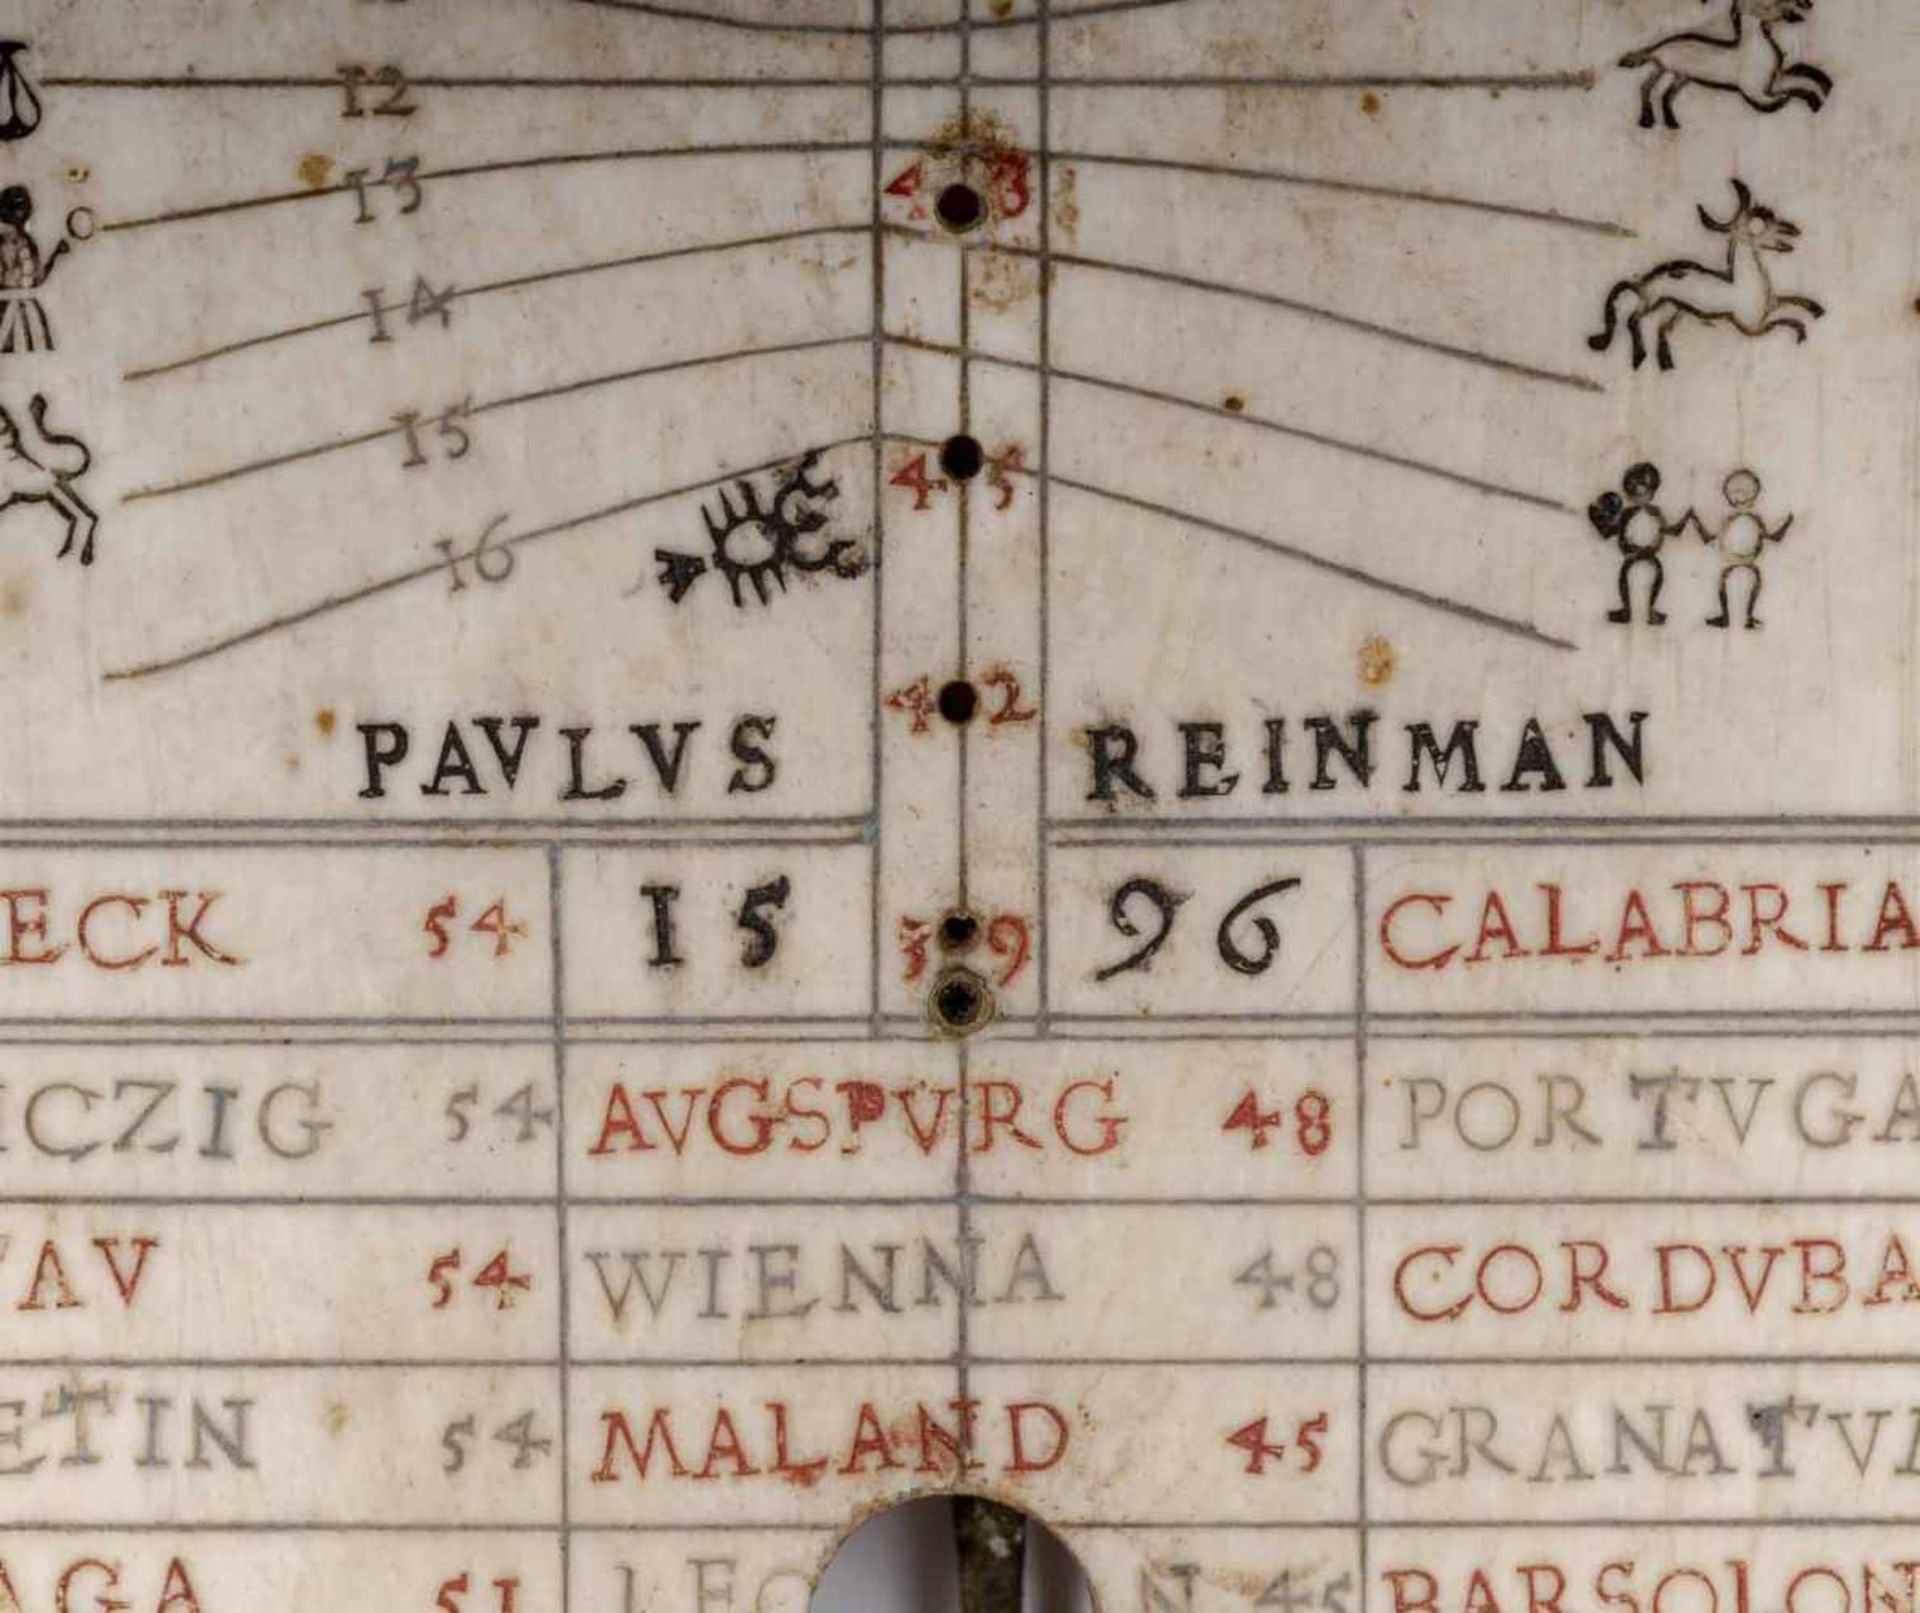 12
13
4 8
14
15
4 5
16
4 2
PAVLVS REINMAN
ECK 54 15 39 96 CALABRIA
CZIG 54 AVGSPVRG 48 PORTVGA
AV 54 WIENNA 48 CORDVBA
ETIN 54 MALAND 45 GRANATV
AGA 51 N 45 BARSOLON